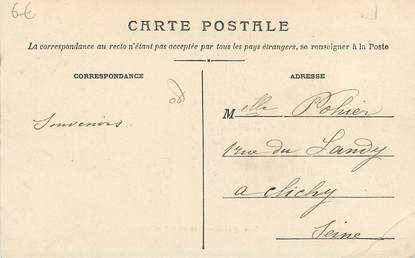 6€
CARTE POSTALE
La correspondance au recto n'étant pas acceptée par tous les pays étrangers, se renseigner à la Poste
CORRESPONDANCE
ADRESSE
Souvenirs
Melle Pohier
1 rue du Landy
a Clichy
Seine